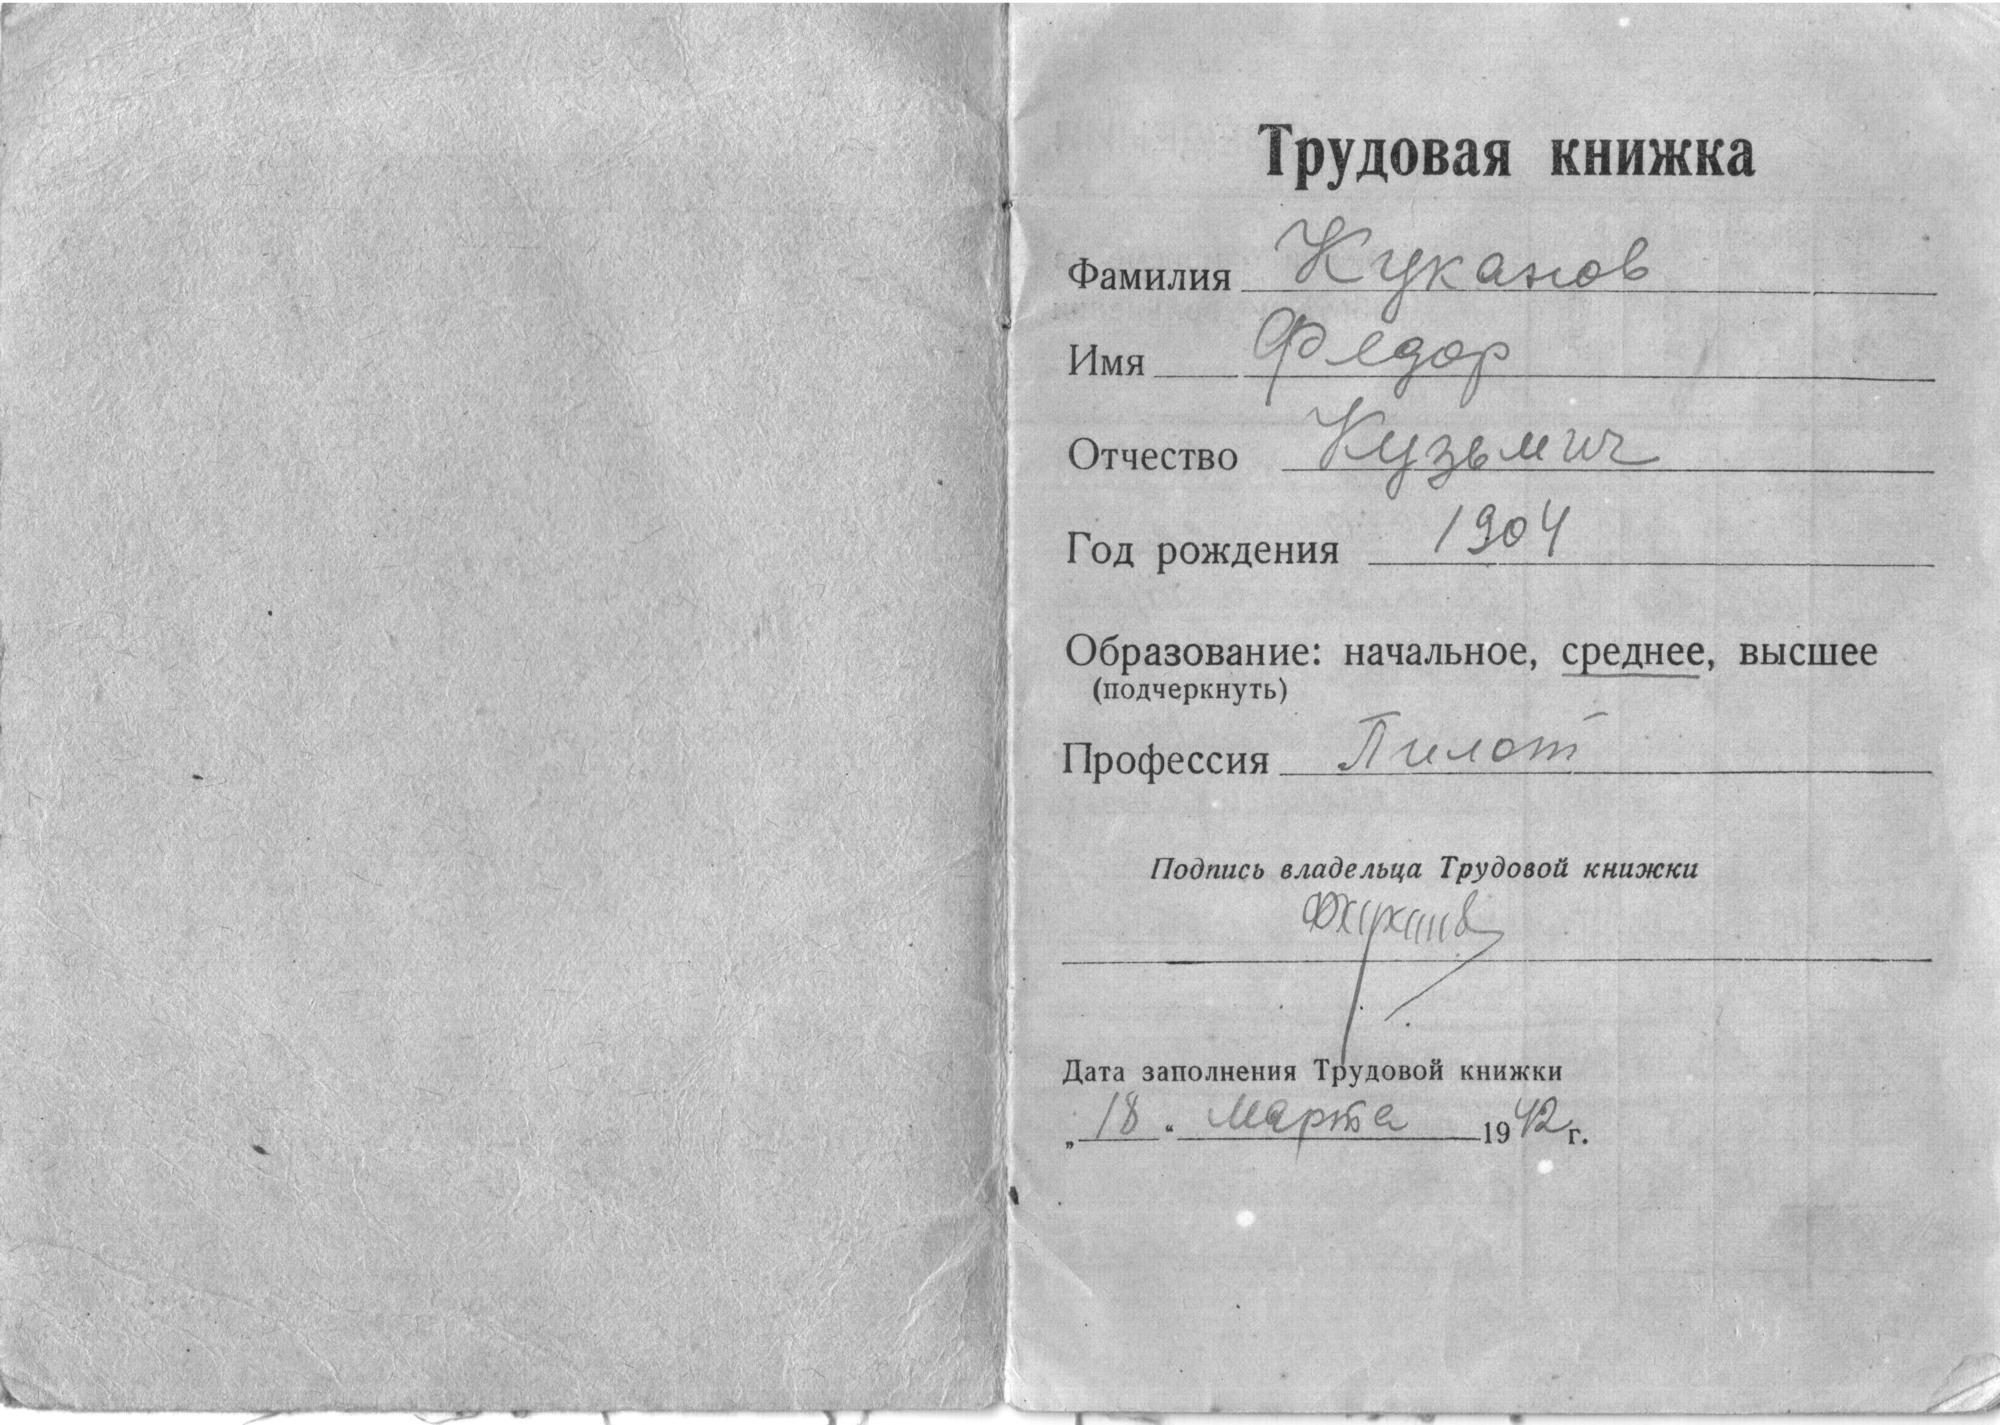 Трудовая книжка
Фамилия Куканов
Имя Федор
Отчество Кузьмич
Год рождения 1904
Образование: начальное, среднее, высшее
(подчеркнуть)
Профессия Пилот
Подпись владельца Трудовой книжки
Дата заполнения Трудовой книжки
„18“ Марта 1942 г.